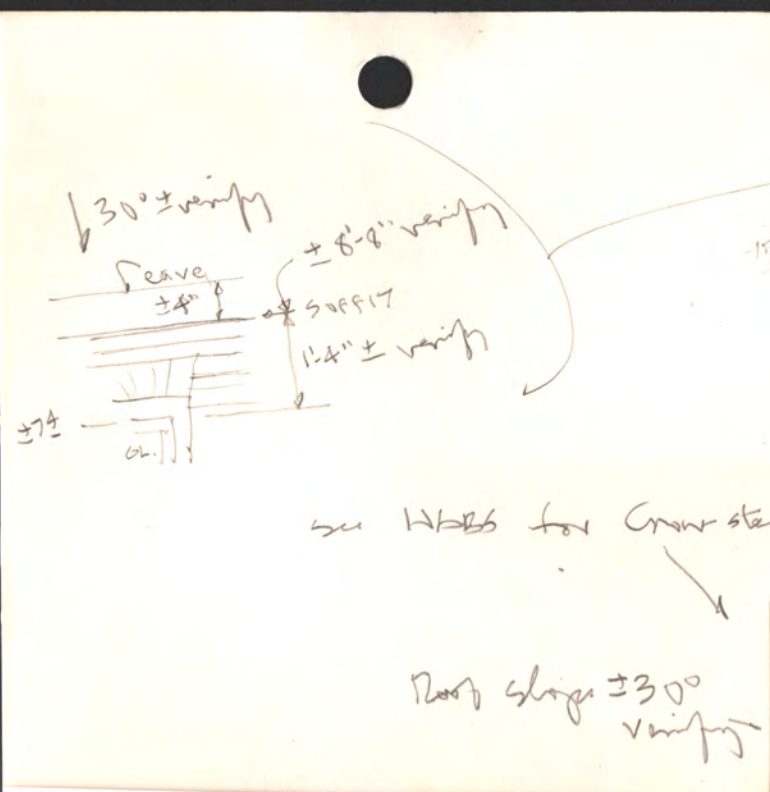 30° ± verify
± 8'-8" verify
eave
±4"
SOFFIT
1'-4" ± verify
±7±
GL.
see WEBB for Crow ste
Roof slope ±30°
verify